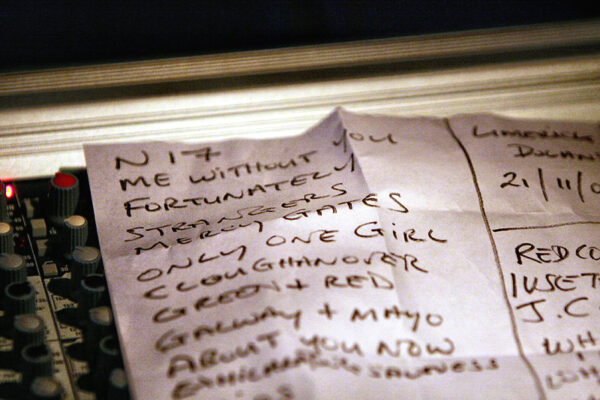 N17
ME WITHOUT YOU
FORTUNATELY
STRANGERS
MERCY GATES
ONLY ONE GIRL
CLOUGHANOVER
GREEN + RED
GALWAY + MAYO
ABOUT YOU NOW
EXHILARATING SADNESS
LIMERICK
DOLAN
21/11/0
RED CO
I USET
J.C.
WH
WH